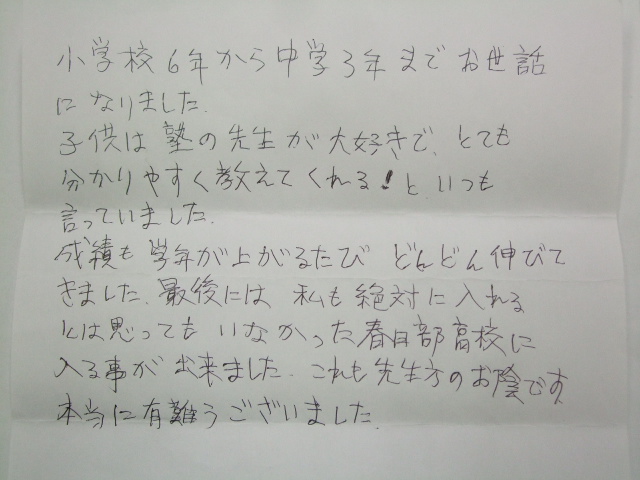 小学校6年から中学3年までお世話
になりました.
子供は塾の先生が大好きで、とても
分かりやすく教えてくれる!といつも
言っていました.
成績も学年が上がるたびどんどん伸びて
きました.最後には私も絶対に入れる
とは思ってもいなかった春日部高校に
入る事が出来ました.これも先生方のお陰です.
本当に有難うございました.